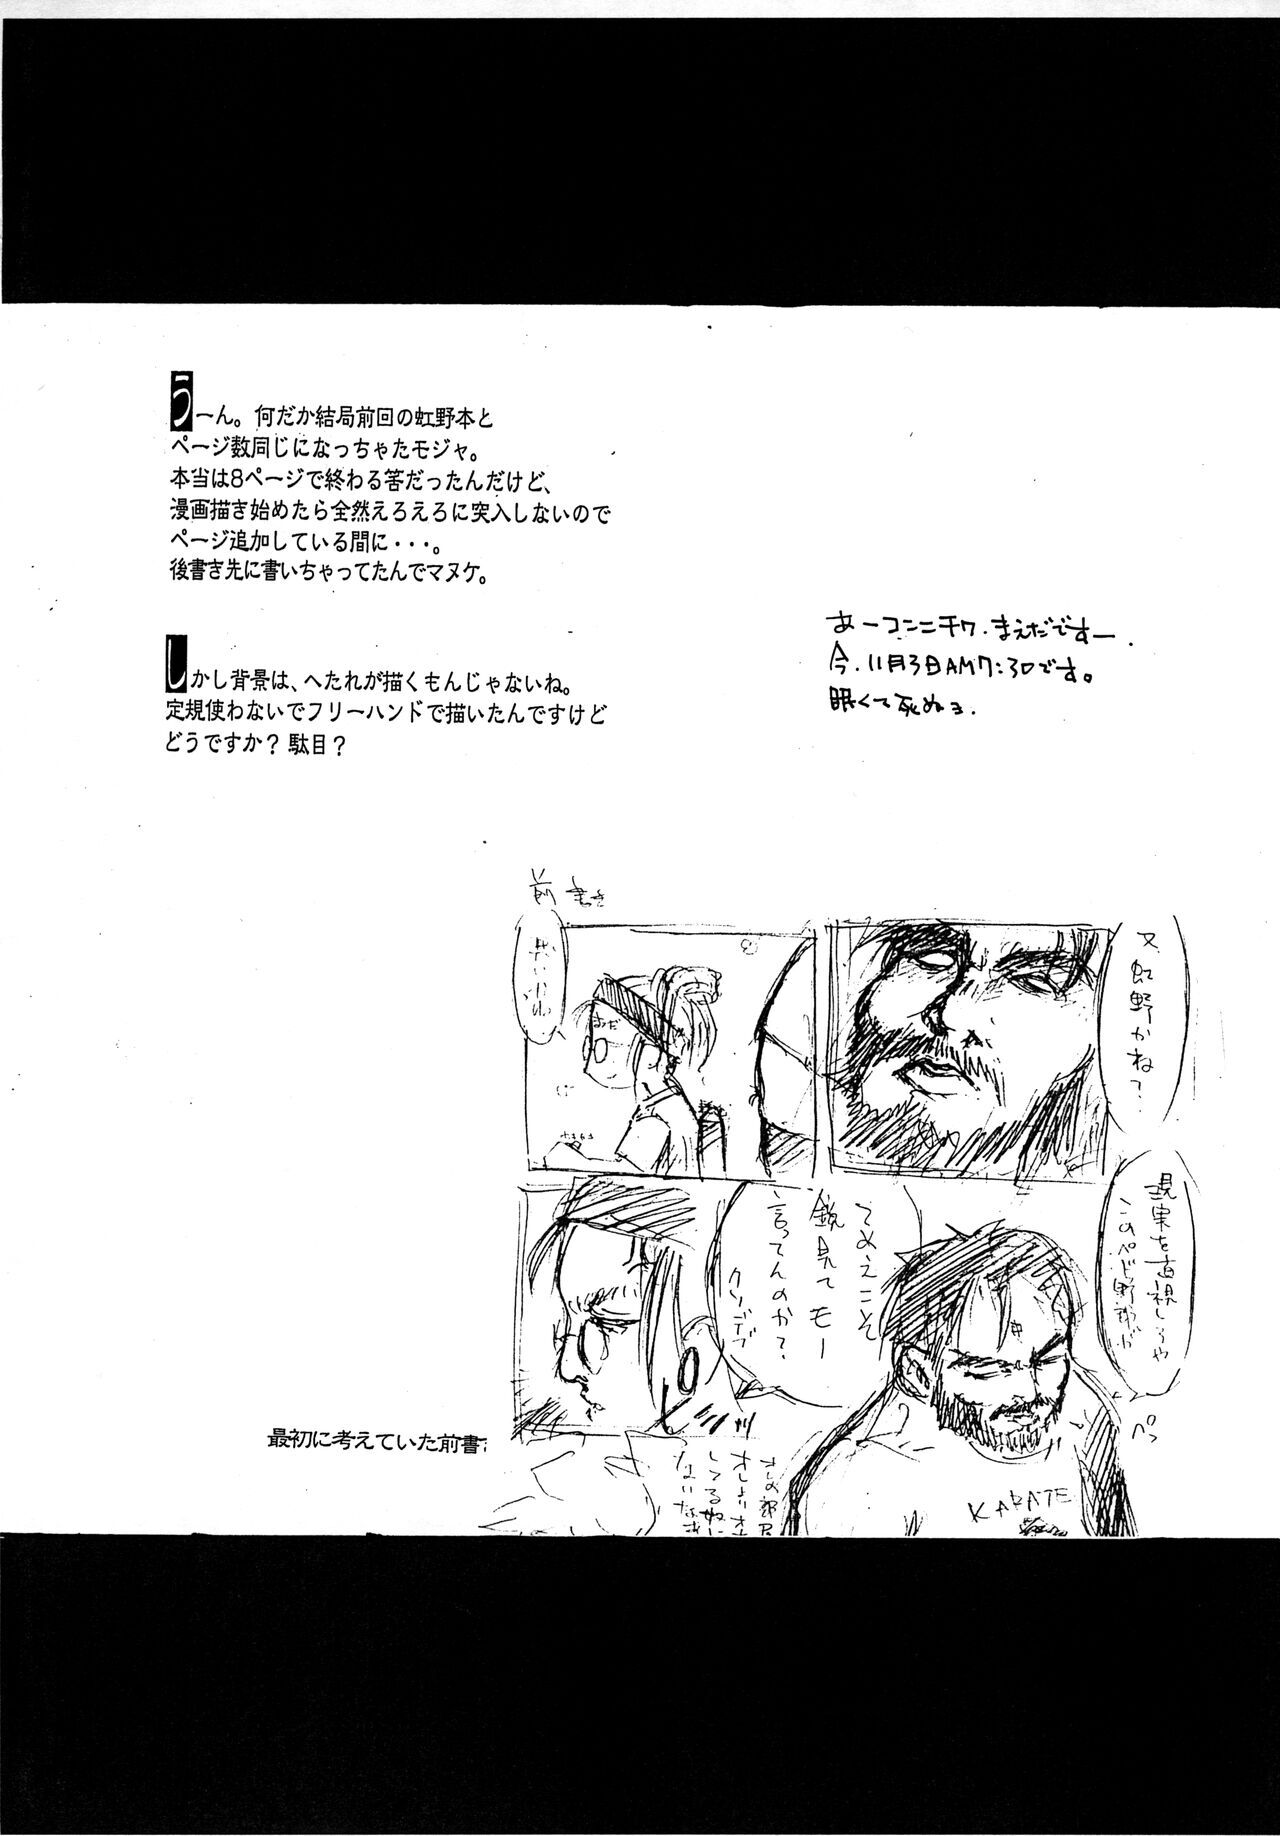 うーん。何だか結局前回の虹野本と
ページ数同じになっちゃたモジャ。
本当は8ページで終わる筈だったんだけど、
漫画描き始めたら全然えろえろに突入しないので
ページ追加している間に・・・。
後書き先に書いちゃってたんでマヌケ。
しかし背景は、へたれが描くもんじゃないね。
定規使わないでフリーハンドで描いたんですけど
どうですか？駄目？
あーコンニチワ.まえだですー.
今.11月3日AM7:30です。
眠くて死ぬョ.
前書き
又虹野かね?
現実を直視しろや
このペド野郎が
ペッ
てめえこそ
鏡見てモー
言ってんのか?
クソデブ
KARATE
最初に考えていた前書